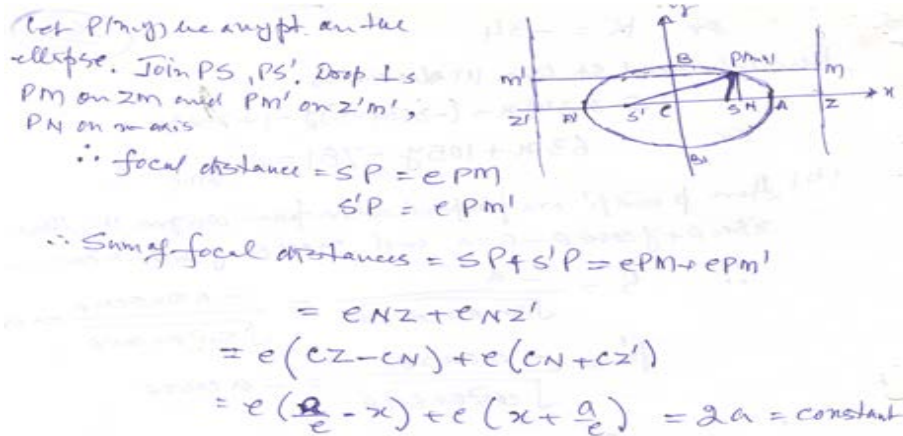 Let P(x,y) be any pt. on the
ellipse. Join PS, PS'. Drop ⊥s
PM on ZM and PM' on Z'M',
PN on x-axis
∴ focal distance = SP = ePM
S'P = ePM'
∴ Sum of focal distances = SP + S'P = ePM + ePM'
= eNZ + eNZ'
= e(CZ - CN) + e(CN + CZ')
= e(a/e - x) + e(x + a/e) = 2a = constant
y
B
P(x,y)
M'
M
Z'
A'
S'
C
S
N
A
Z
x
B'